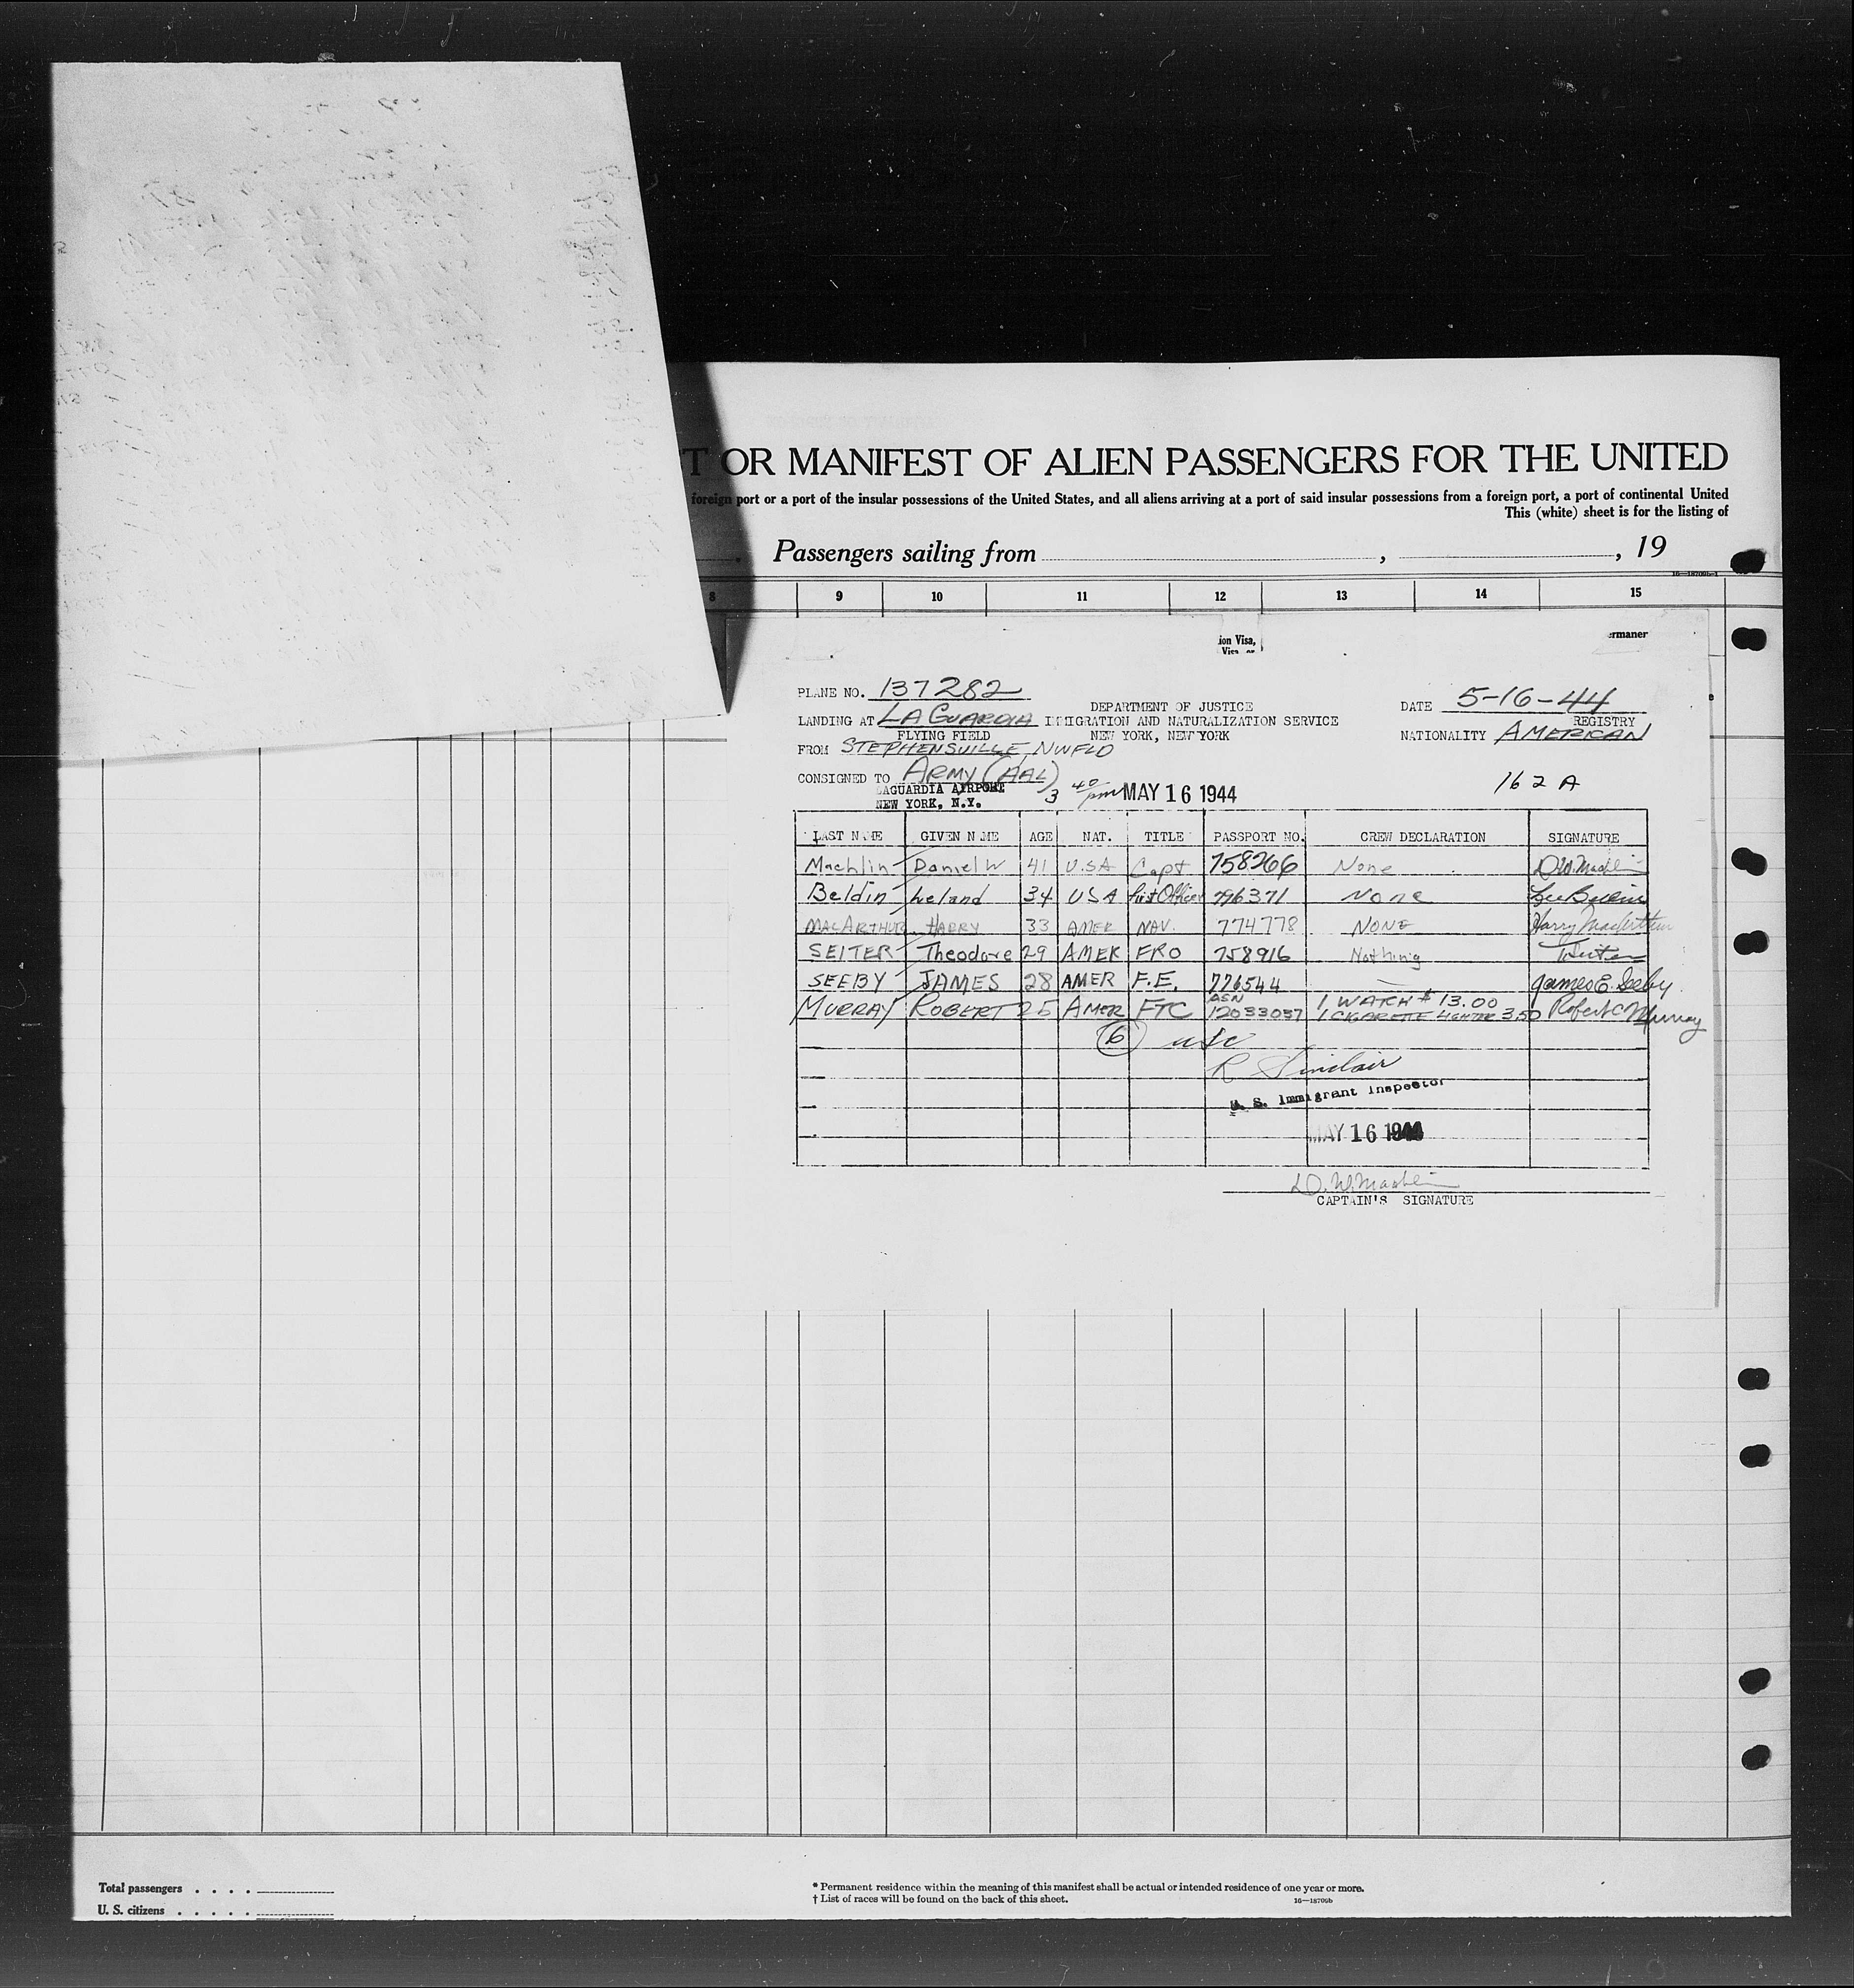 T OR MANIFEST OF ALIEN PASSENGERS FOR THE UNITED
foreign port or a port of the insular possessions of the United States, and all aliens arriving at a port of said insular possessions from a foreign port, a port of continental United
This (white) sheet is for the listing of
Passengers sailing from , , 19
8 9 10 11 12 13 14 15
ion Visa, ermaner
PLANE NO. 137282
DATE 5-16-44
DEPARTMENT OF JUSTICE
LANDING AT LA GUARDIA IMMIGRATION AND NATURALIZATION SERVICE REGISTRY
FLYING FIELD NEW YORK, NEW YORK NATIONALITY AMERICAN
FROM STEPHENSVILLE, NWFLD
CONSIGNED TO ARMY (AAL) 162 A
LAGUARDIA AIRPORT
NEW YORK, N.Y. 3 40 pm MAY 16 1944
LAST NAME GIVEN NAME AGE NAT. TITLE PASSPORT NO. CREW DECLARATION SIGNATURE
Machlin Daniel W 41 U.S.A Capt 758266 None D.W. Machlin
Beldin Leland 34 USA First Officer 796371 None Lee Beldin
MACARTHUR HARRY 33 AMER NAV. 774778 NONE Harry MacArthur
SEITER Theodore 29 AMER FRO 758916 Nothing TSeiter
SEEBY JAMES 28 AMER F.E. 776544 — James E. Seeby
MURRAY ROBERT 25 AMER FTC ASN 12033037 1 WATCH $13.00 1 CIGARETTE LIGHTER 3.50 Robert C Murray
6 USC
R Sinclair
U. S. Immigrant Inspector
MAY 16 1944
D. W. Machlin
CAPTAIN'S SIGNATURE
Total passengers . . . .
U. S. citizens . . . . .
* Permanent residence within the meaning of this manifest shall be actual or intended residence of one year or more.
† List of races will be found on the back of this sheet. 16—18706b